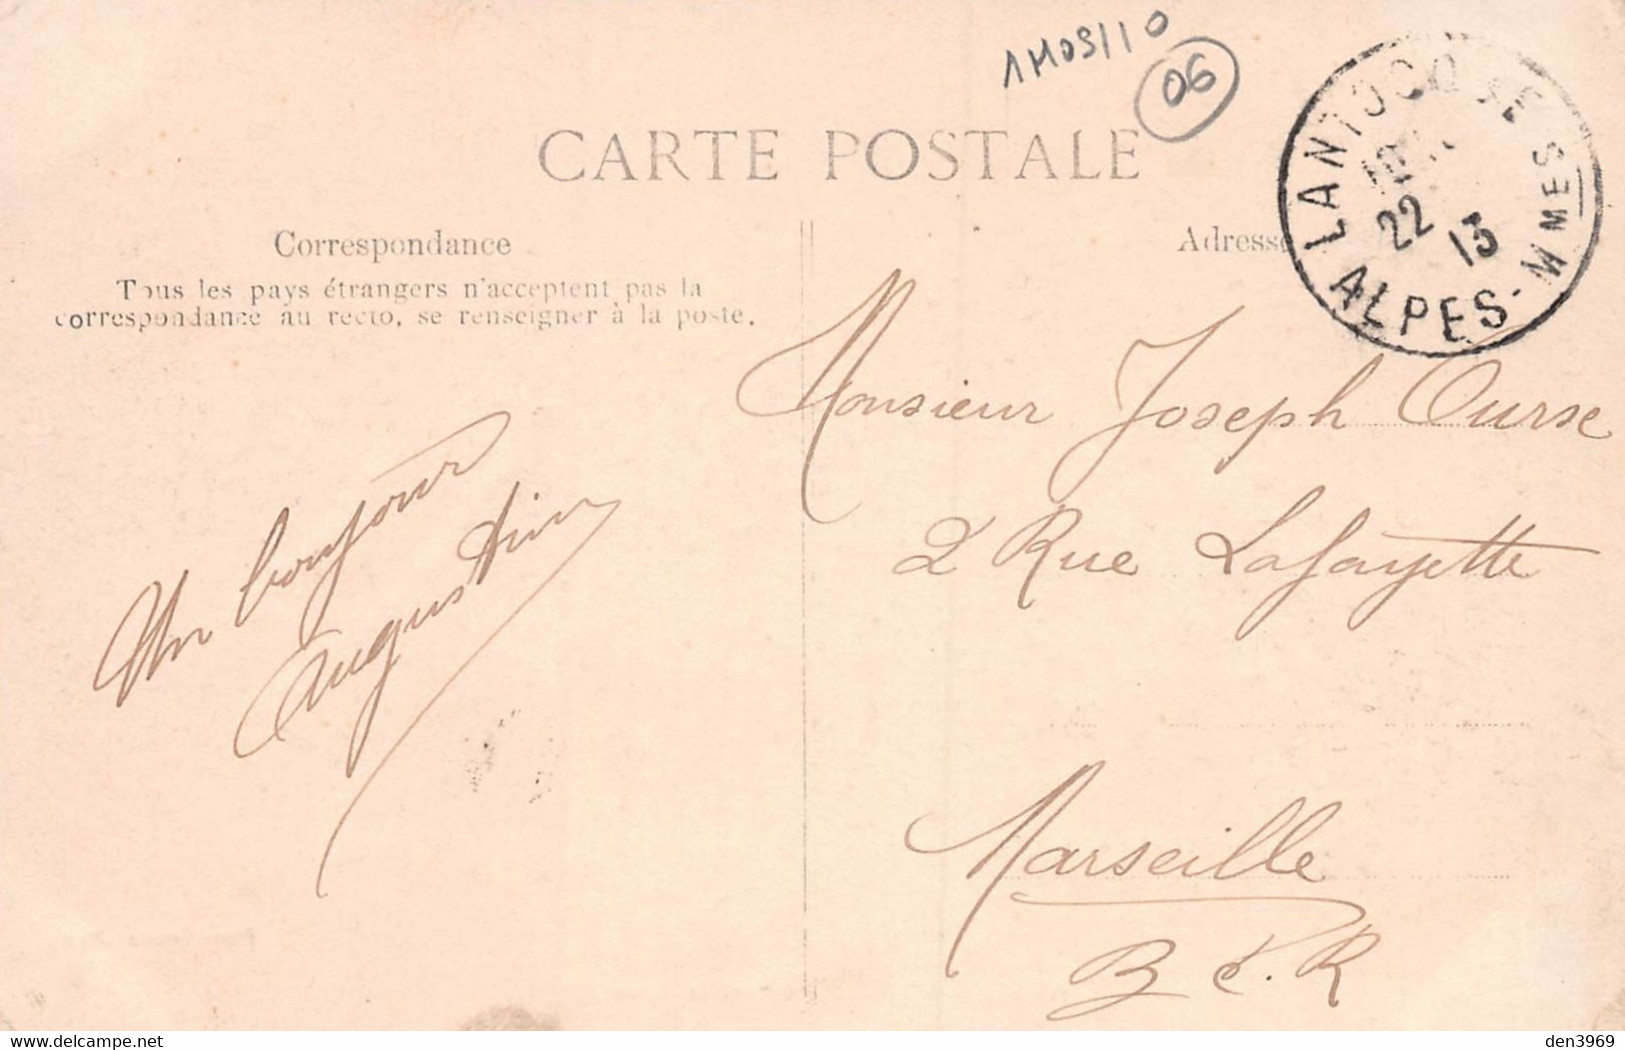 1M09110
06
CARTE POSTALE
Correspondance
Adresse
Tous les pays étrangers n'acceptent pas la
correspondance au recto, se renseigner à la poste.
LANTOSQUE
22 13
ALPES-MMES
Un bonjour
Augustin
Monsieur Joseph Ourse
2 Rue Lafayette
Marseille
B d. R
delcampe.net
den3969